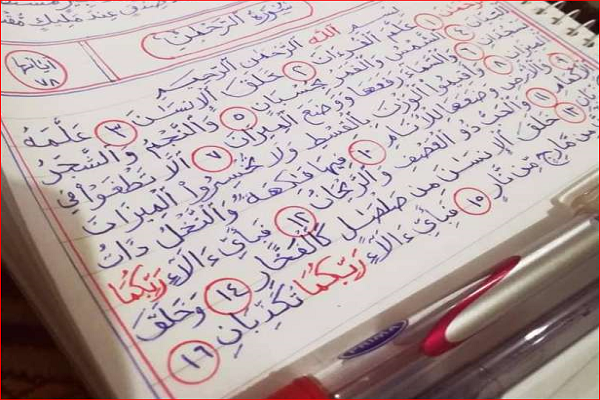 صدق عند مليك
سُورَةُ الرَّحْمَٰنِ
آياتها ٧٨
بِسْمِ اللهِ الرَّحْمَٰنِ الرَّحِيمِ
الرَّحْمَٰنُ ١ عَلَّمَ الْقُرْءَانَ ٢ خَلَقَ الْإِنسَٰنَ ٣ عَلَّمَهُ
الْبَيَانَ ٤ الشَّمْسُ وَالْقَمَرُ بِحُسْبَانٍ ٥ وَالنَّجْمُ وَالشَّجَرُ
يَسْجُدَانِ ٦ وَالسَّمَاءَ رَفَعَهَا وَوَضَعَ الْمِيزَانَ ٧ أَلَّا تَطْغَوْا فِي
الْمِيزَانِ ٨ وَأَقِيمُوا الْوَزْنَ بِالْقِسْطِ وَلَا تُخْسِرُوا الْمِيزَانَ
٩ وَالْأَرْضَ وَضَعَهَا لِلْأَنَامِ ١٠ فِيهَا فَٰكِهَةٌ وَالنَّخْلُ ذَاتُ
الْأَكْمَامِ ١١ وَالْحَبُّ ذُو الْعَصْفِ وَالرَّيْحَانُ ١٢ فَبِأَيِّ ءَالَاءِ رَبِّكُمَا
١٣ خَلَقَ الْإِنسَٰنَ مِن صَلْصَٰلٍ كَالْفَخَّارِ ١٤ وَخَلَقَ
مِن مَّارِجٍ مِّن نَّارٍ ١٥ فَبِأَيِّ ءَالَاءِ رَبِّكُمَا تُكَذِّبَانِ ١٦